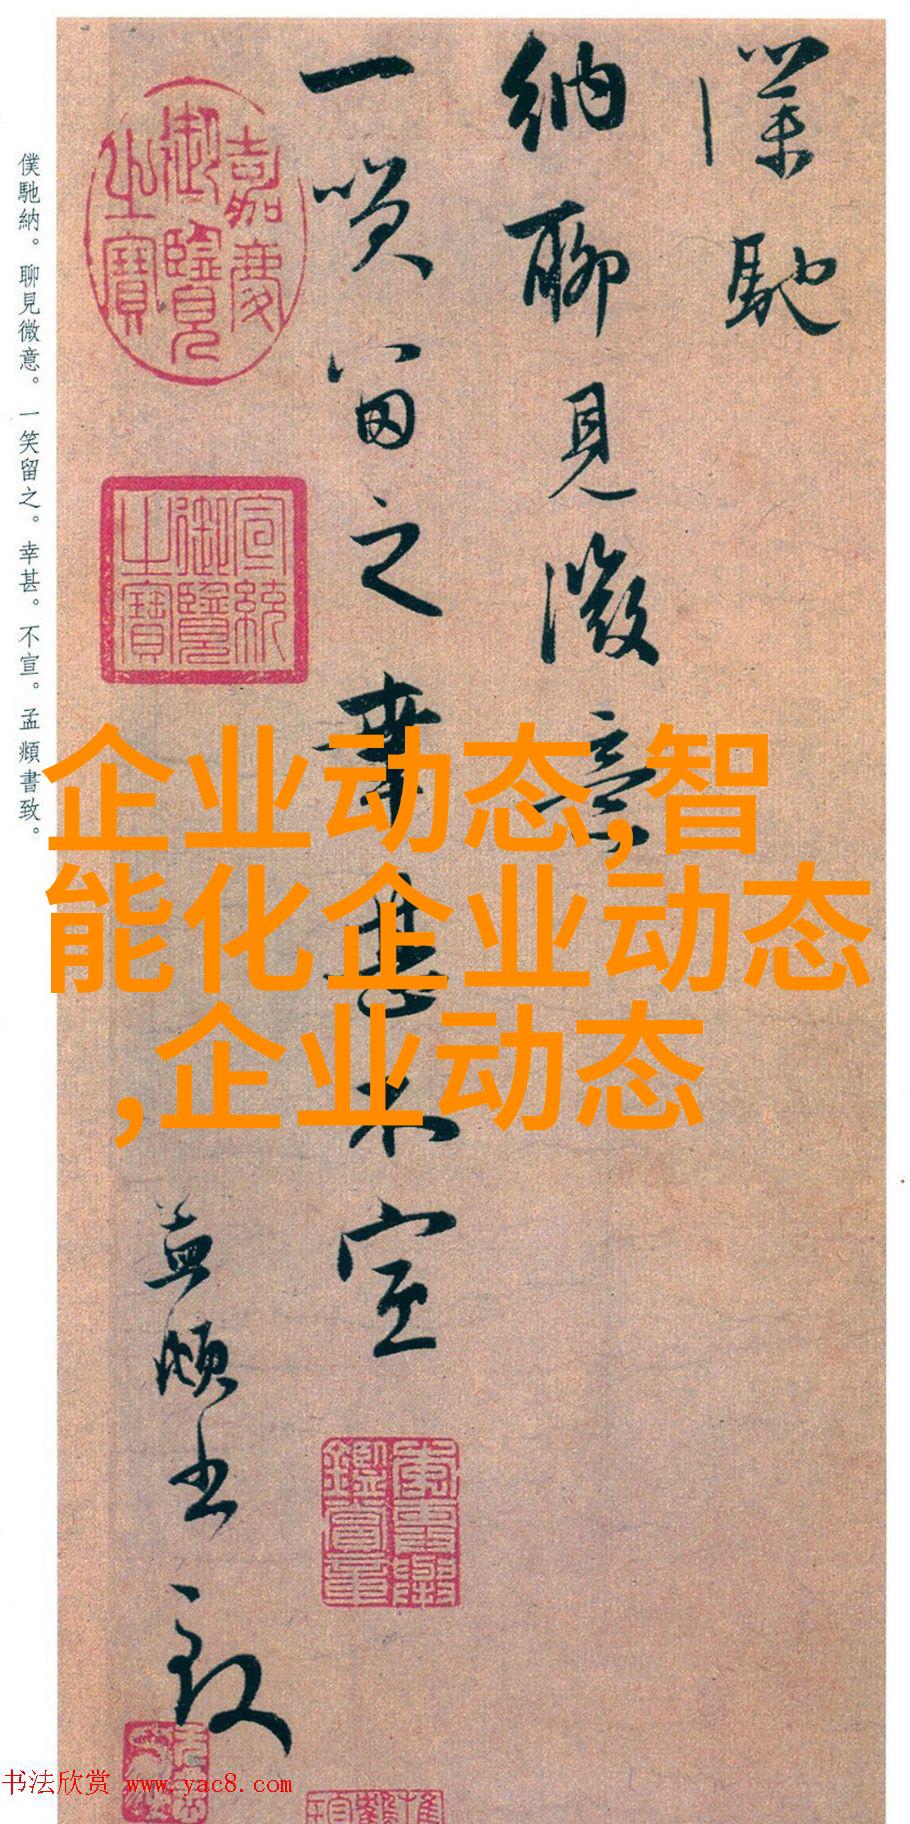 僕馳
納聊見微意
一笑留之幸甚不宣
孟頫書致
嘉慶御覽之寶
宣統御覽之寶
僕馳納。聊見微意。一笑留之。幸甚。不宣。孟頫書致。
企业动态,智
能化企业动态
,企业动态
书法欣赏 www.yac8.com